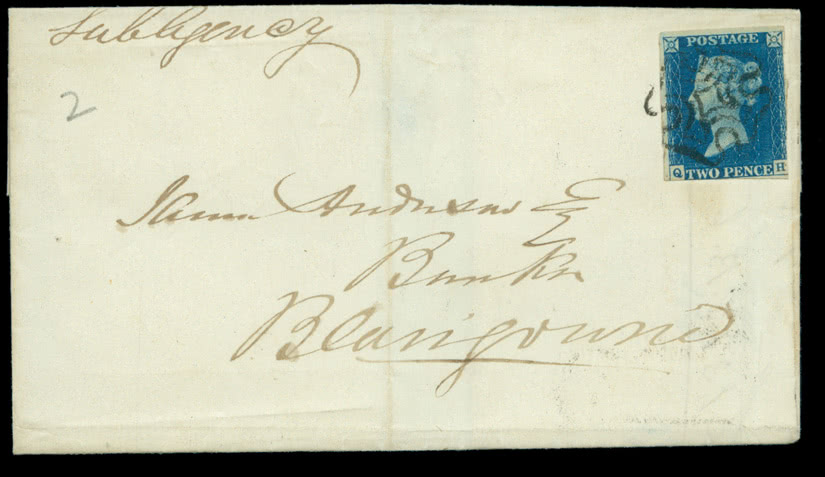 Sub Agency
2
POSTAGE
TWO PENCE
Q H
James Anderson Esq
Banker
Blairgowrie